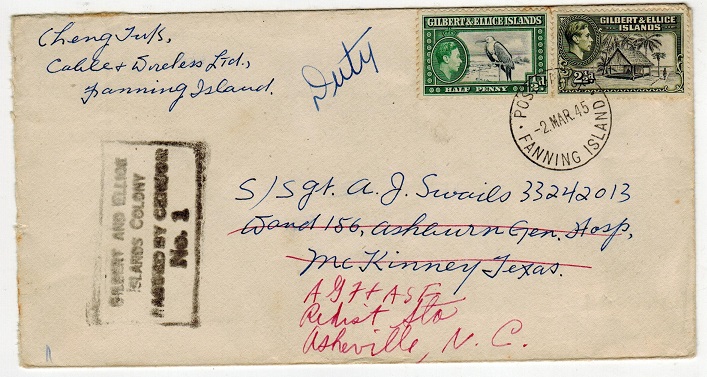 Cheng Tuk,
Cable & Wireless Ltd.,
Fanning Island.
Duty
GILBERT & ELLICE ISLANDS
½D
HALF PENNY
GILBERT & ELLICE
ISLANDS
2½D
POS
-2.MAR.45
FANNING ISLAND
GILBERT AND ELLICE
ISLANDS COLONY
PASSED BY CENSOR
No. 1
S/Sgt. A. J. Swails 33242013
Ward 156, Ashburn Gen. Hosp,
McKinney Texas.
Redist Sta
Asheville, N. C.